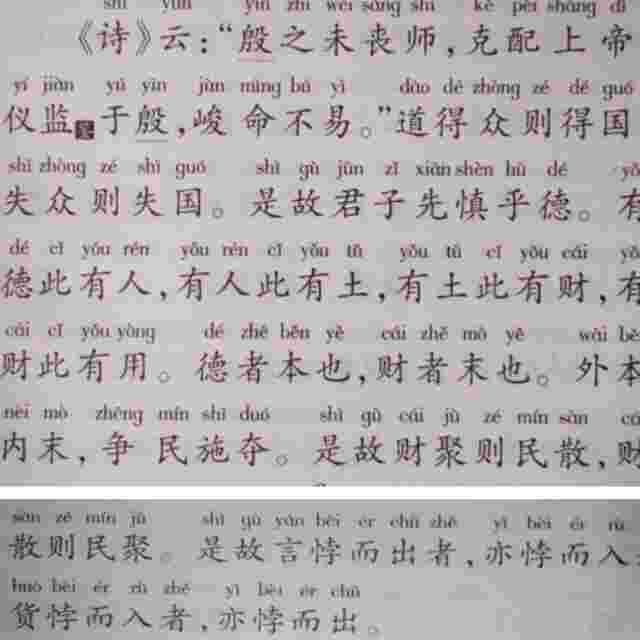 shī yún yīn zhī wèi sàng shī kè pèi shàng dì
《诗》云：“殷之未丧师，克配上帝
yí jiàn yú yīn jùn mìng bú yì dào dé zhòng zé dé guó
仪监于殷，峻命不易。”道得众则得国
shī zhòng zé shī guó shì gù jūn zǐ xiān shèn hū dé
失众则失国。是故君子先慎乎德。有
dé cǐ yǒu rén yǒu rén cǐ yǒu tǔ yǒu tǔ cǐ yǒu cái
德此有人，有人此有土，有土此有财，有
cái cǐ yǒu yòng dé zhě běn yě cái zhě mò yě wài
财此有用。德者本也，财者末也。外本
nèi mò zhēng mín shī duó shì gù cái jù zé mín sàn
内末，争民施夺。是故财聚则民散，财
sàn zé mín jù shì gù yán bèi ér chū zhě yì bèi ér rù
散则民聚。是故言悖而出者，亦悖而入
huò bèi ér rù zhě yì bèi ér chū
货悖而入者，亦悖而出。